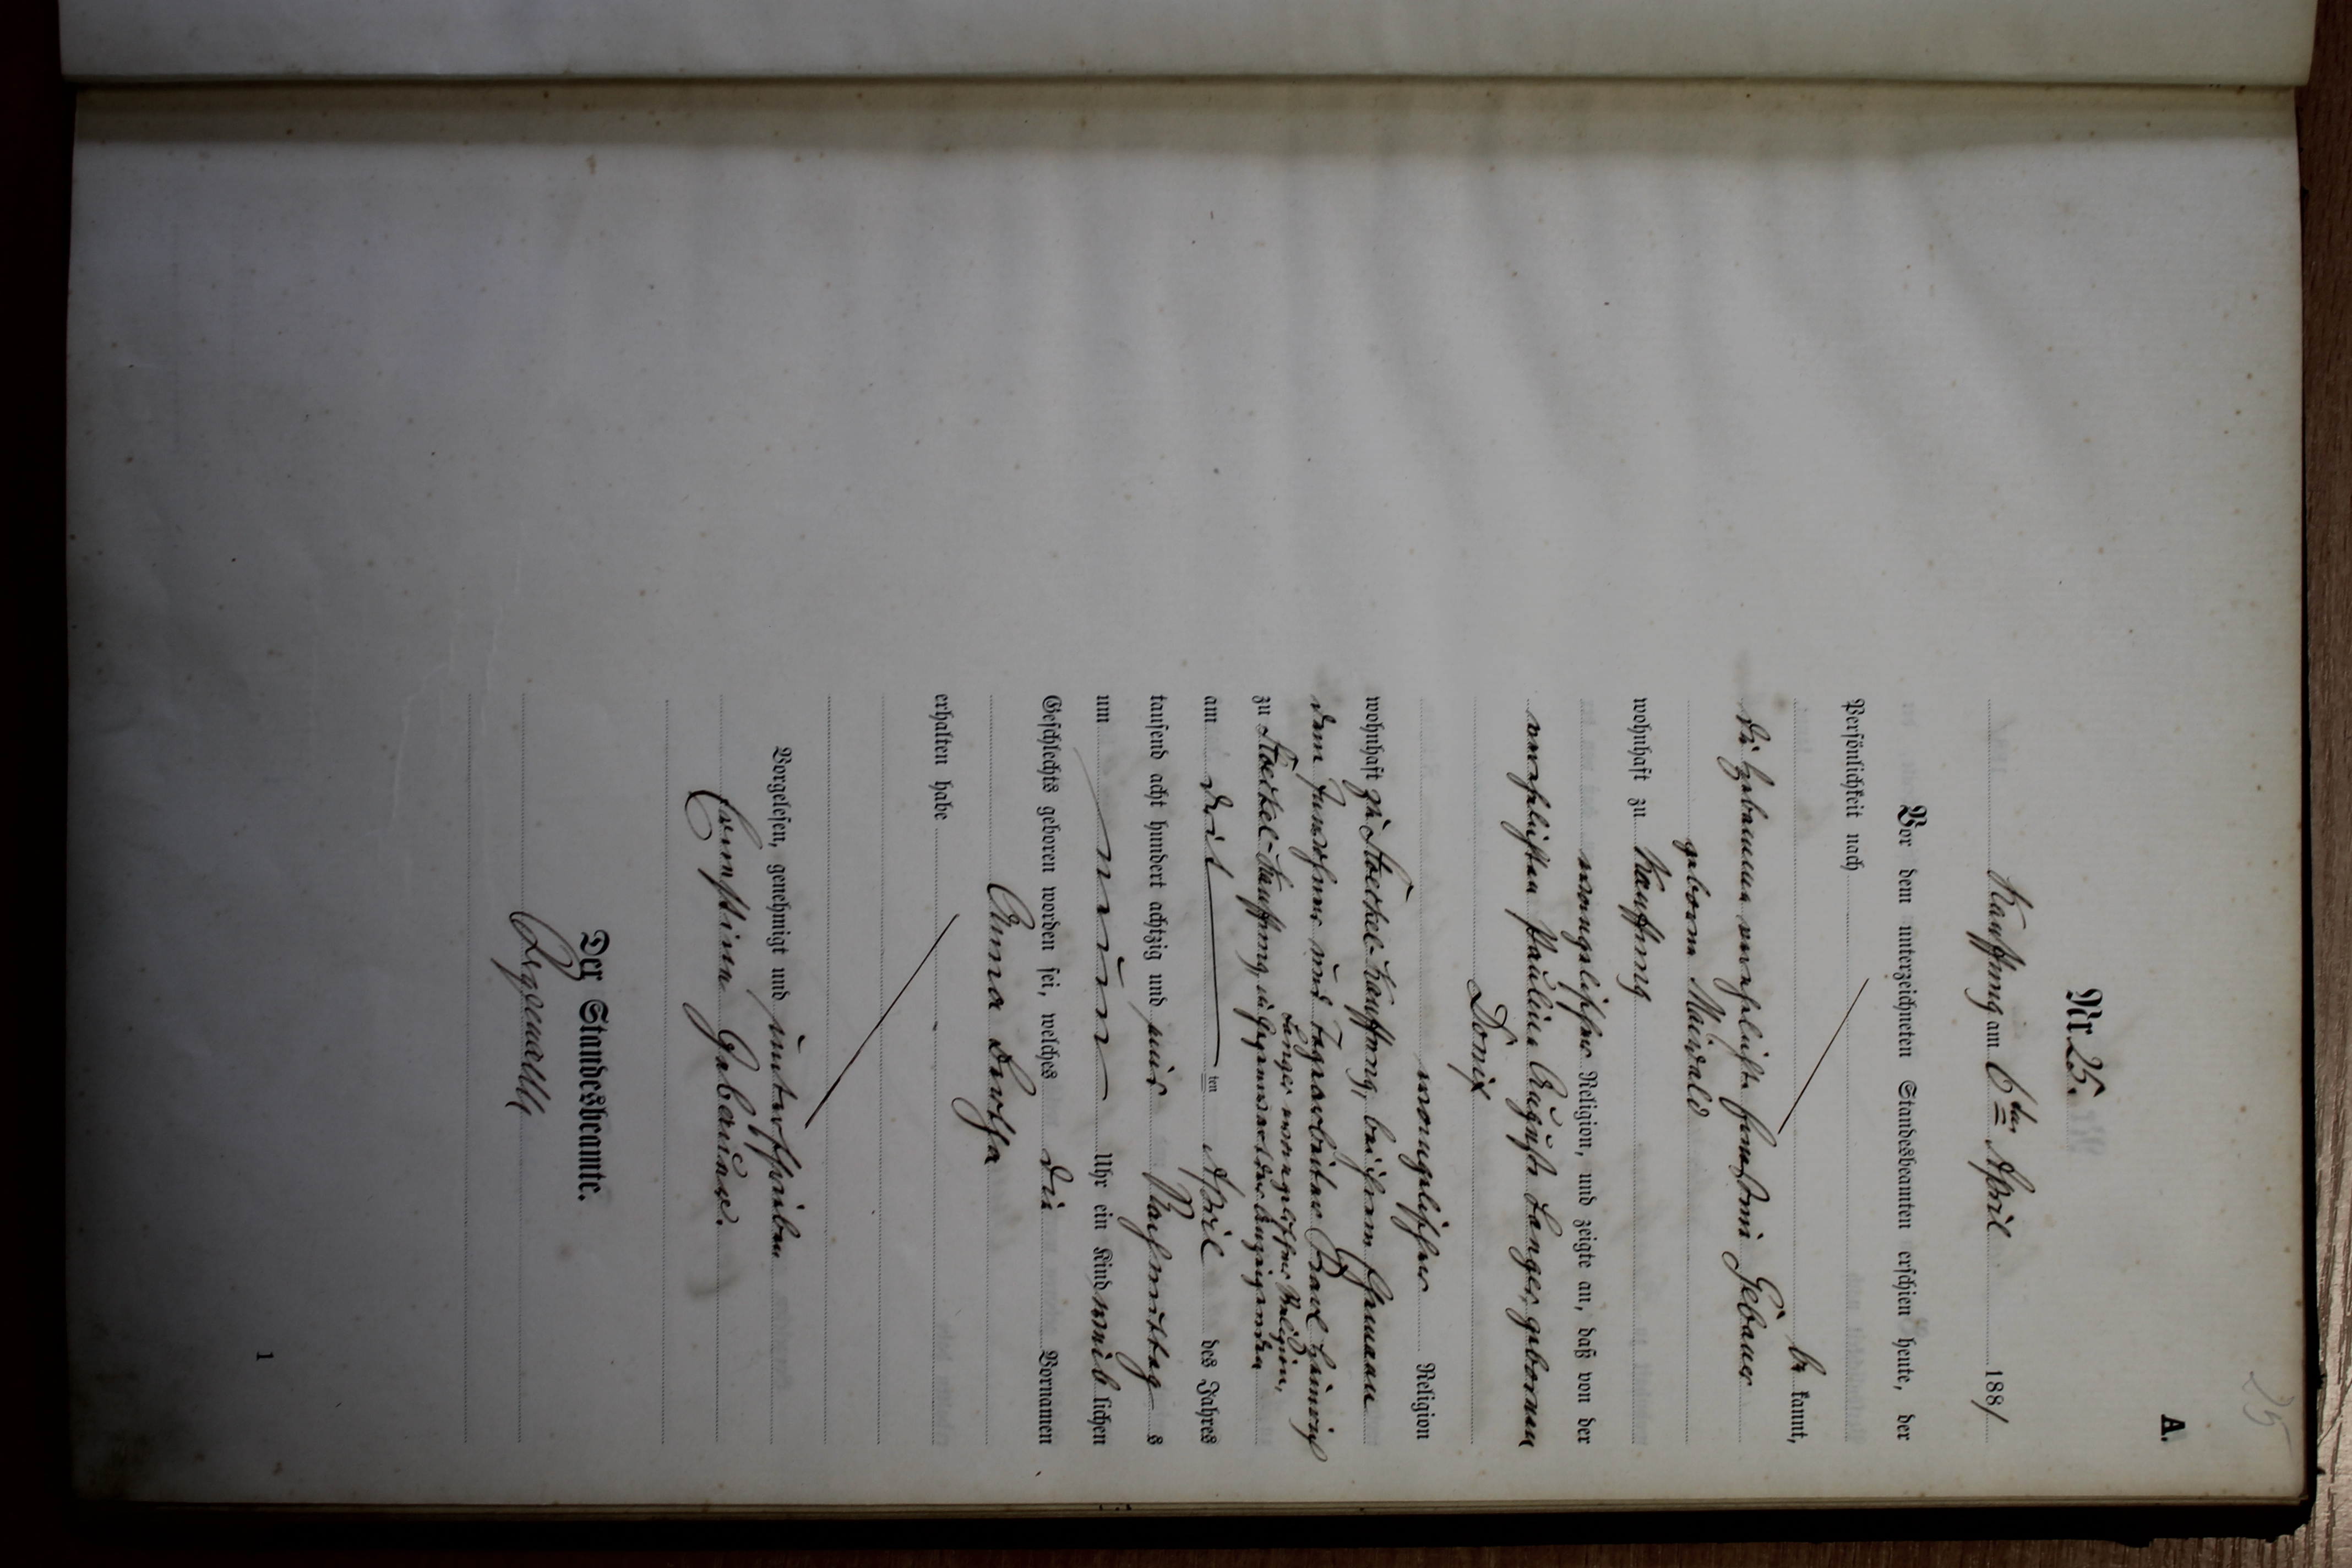 25
A.
Nr. 25.
Kauffung am 6ten April 1881
Vor dem unterzeichneten Standesbeamten erschien heute, der
Persönlichkeit nach
be kannt,
die Hebamme verehelichte Ernestine Gebauer
geborene Maiwald
wohnhaft zu Kauffung
evangelischer Religion, und zeigte an, daß von der
verehelichten Pauline Auguste Langer, geborenen
Donix
evangelischer Religion
wohnhaft zu Stoeckel-Kauffung, bei ihrem Ehemann
dem Inwohner und Tagearbeiter Karl Heinrich
Langer evangelischer Religion,
zu Stoeckel-Kauffung, in Gegenwart der Anzeigenden
am drit ten April des Jahres
tausend acht hundert achtzig und eins Nachmittag s
um neun Uhr ein Kind weib lichen
Geschlechts geboren worden sei, welches die Vornamen
Anna Bertha
erhalten habe
Vorgelesen, genehmigt und unterschrieben
Ernestine Gebauer.
Der Standesbeamte.
1